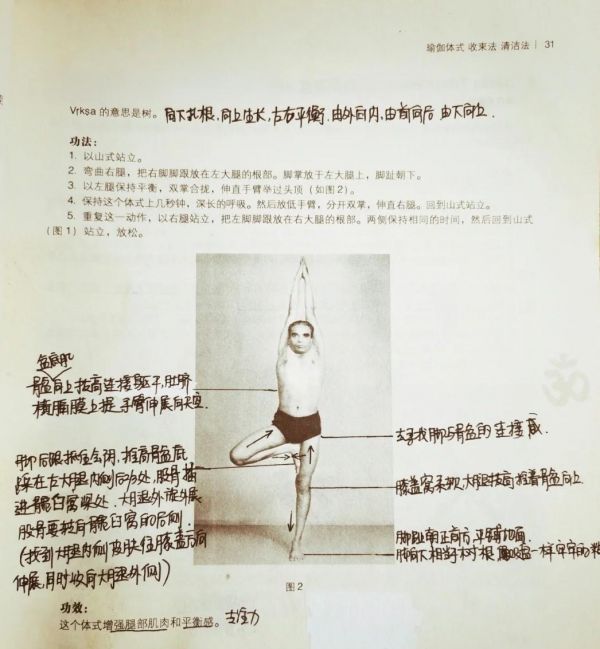 瑜伽体式 收束法 清洁法 | 31
Vṛkṣa 的意思是树。向下扎根,向上生长,左右平衡.由外向内,由前向后 由下向上.
功法:
1. 以山式站立。
2. 弯曲右腿,把右脚脚跟放在左大腿的根部。脚掌放于左大腿上,脚趾朝下。
3. 以左腿保持平衡,双掌合拢,伸直手臂举过头顶(如图2)。
4. 保持这个体式上几秒钟,深长的呼吸。然后放低手臂,分开双掌,伸直右腿。回到山式站立。
5. 重复这一动作,以右腿站立,把左脚脚跟放在右大腿的根部。两侧保持相同的时间,然后回到山式
(图1)站立,放松。
盆底肌
骨盆向上拔高连接躯干,肚脐
横膈膜上提 手臂伸展向天空.
脚后跟抵住会阴.推高骨盆底
踩在左大腿内侧后1/3处.股骨插
进髋臼窝深处.大腿外旋外展
股骨要转向髋臼窝的后侧.
(找到大腿内侧皮肤往膝盖方向
伸展,同时收向大腿外侧))
去寻找脚与骨盆的连接感.
膝盖窝柔软,大腿拔高推着骨盆向上
脚趾朝正前方,平铺地面.
脚底下相当于树根 像吸盘一样牢牢的
图2
功效:
这个体式增强腿部肌肉和平衡感。专注力